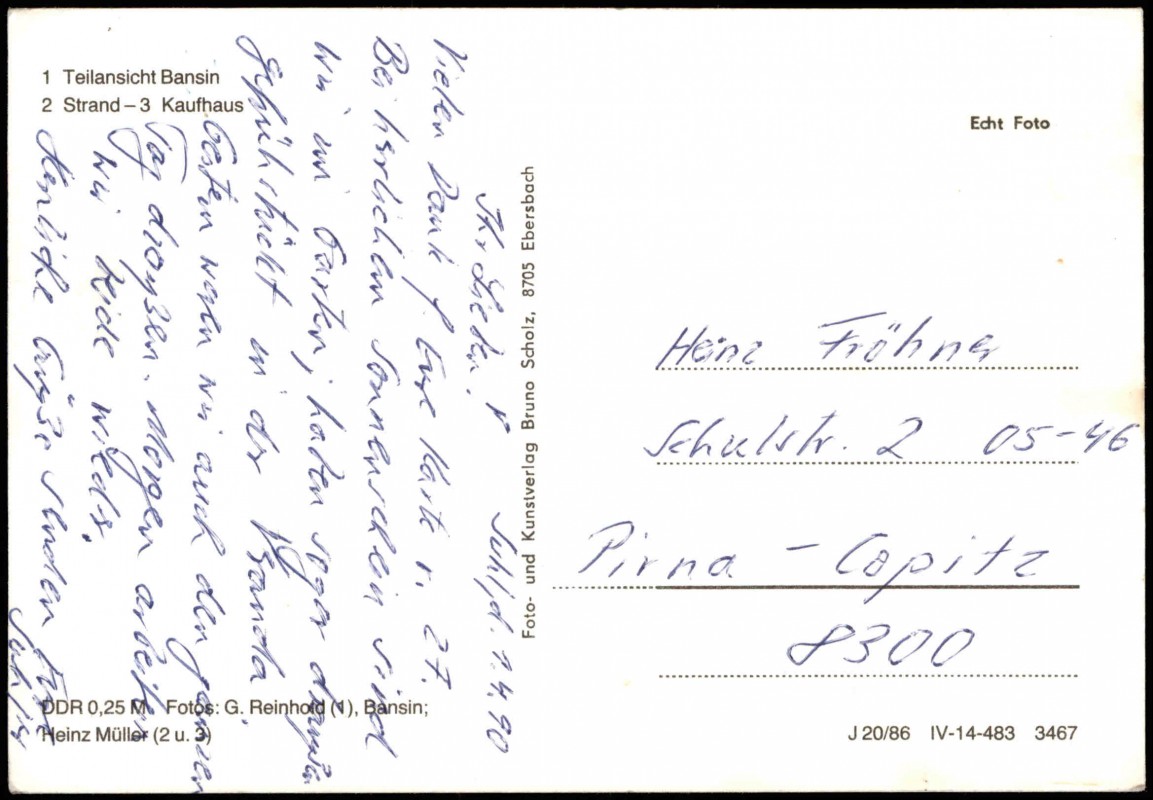 1 Teilansicht Bansin
2 Strand – 3 Kaufhaus
Echt Foto
Suhl, d. 1.4.90
Ihr Lieben!
Vielen Dank f. Eure Karte v. 27.
Bei herrlichem Sonnenschein sind
wir im Garten, haben sogar draußen
gefrühstückt in der Veranda.
Gestern waren wir auch den ganzen
Tag draußen. Morgen arbeiten
wir beide wieder.
Herzliche Grüße senden Eure
Foto- und Kunstverlag Bruno Scholz, 8705 Ebersbach
Heinz Fröhner
Schulstr. 2 05-46
Pirna - Copitz
8300
DDR 0,25 M Fotos: G. Reinhold (1), Bansin;
Heinz Müller (2 u. 3)
J 20/86 IV-14-483 3467